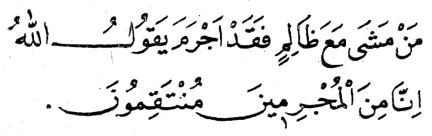 مَنْ مَشَى مَعَ ظَالِمٍ فَقَدْ اَجْرَمَ يَقُولُ اللهُ
اِنَّا مِنَ الْمُجْرِمِينَ مُنْتَقِمُونَ .